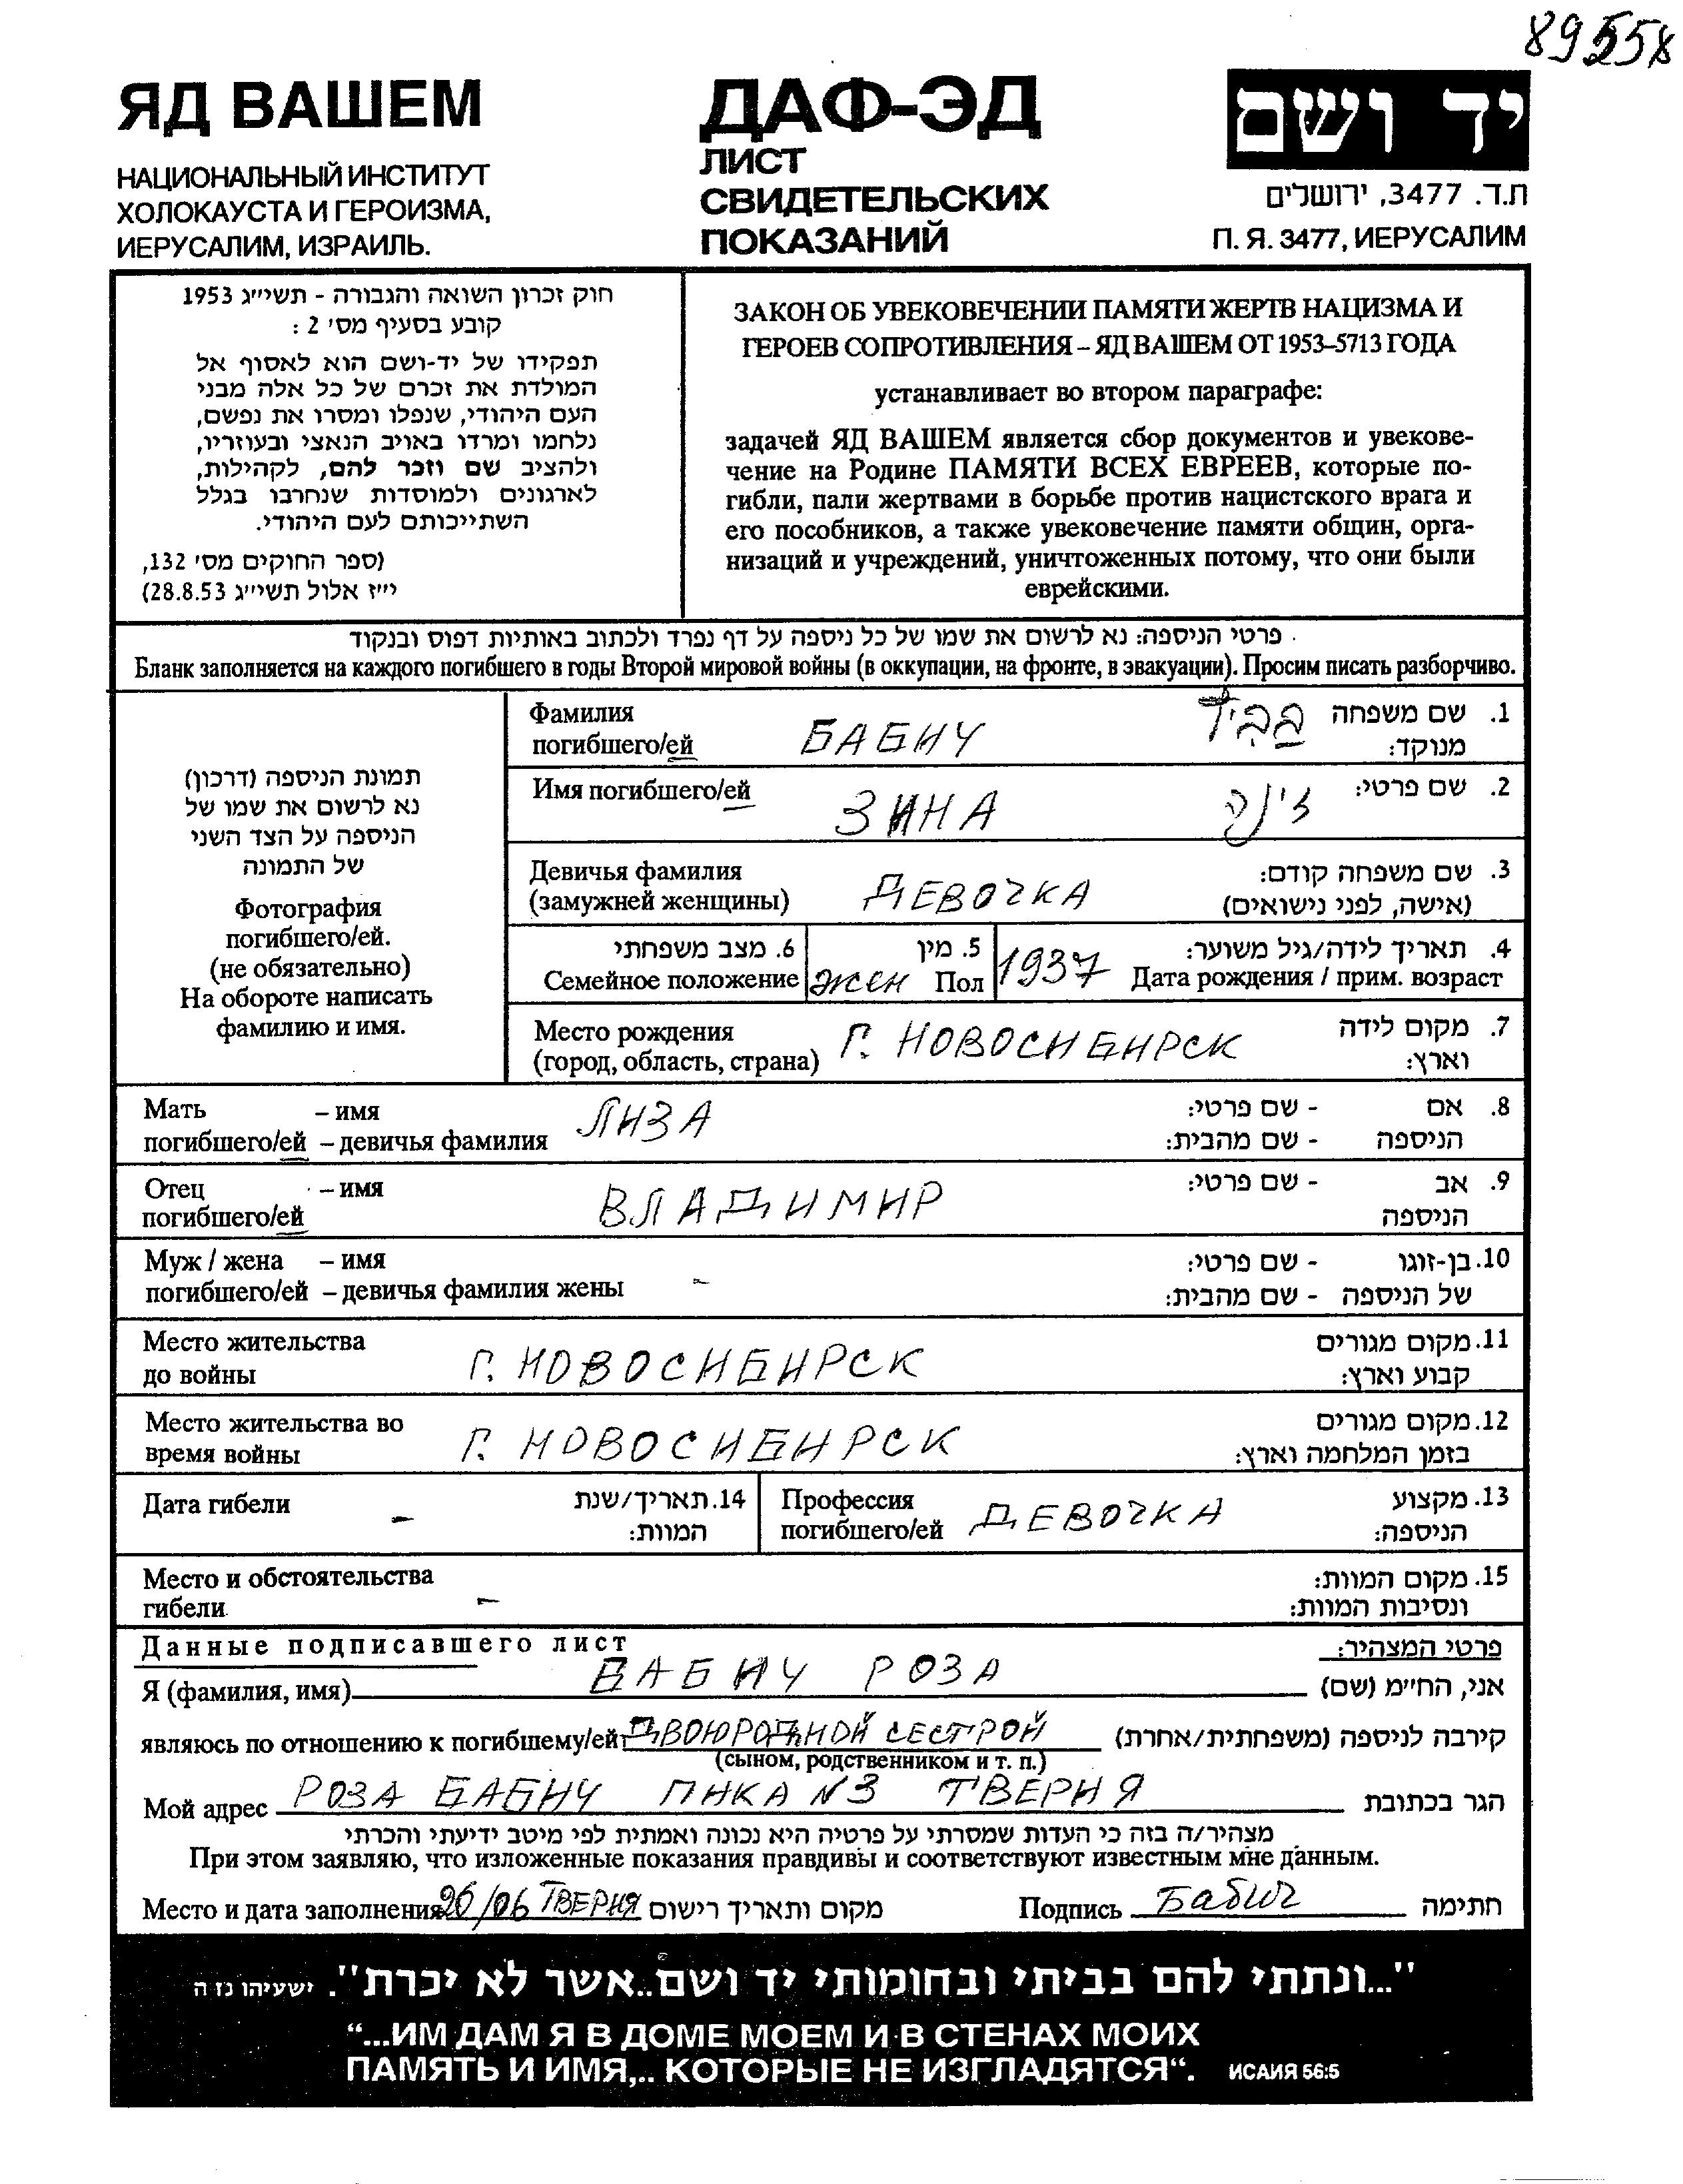 89558
ЯД ВАШЕМ
НАЦИОНАЛЬНЫЙ ИНСТИТУТ
ХОЛОКАУСТА И ГЕРОИЗМА,
ИЕРУСАЛИМ, ИЗРАИЛЬ.
ДАФ-ЭД
ЛИСТ
СВИДЕТЕЛЬСКИХ
ПОКАЗАНИЙ
יד ושם
ת.ד. 3477, ירושלים
П. Я. 3477, ИЕРУСАЛИМ
חוק זכרון השואה והגבורה - תשי״ג 1953
קובע בסעיף מס׳ 2 :
תפקידו של יד-ושם הוא לאסוף אל
המולדת את זכרם של כל אלה מבני
העם היהודי, שנפלו ומסרו את נפשם,
נלחמו ומרדו באויב הנאצי ובעוזריו,
ולהציב שם וזכר להם, לקהילות,
לארגונים ולמוסדות שנחרבו בגלל
השתייכותם לעם היהודי.
(ספר החוקים מס׳ 132,
י״ז אלול תשי״ג 28.8.53)
ЗАКОН ОБ УВЕКОВЕЧЕНИИ ПАМЯТИ ЖЕРТВ НАЦИЗМА И
ГЕРОЕВ СОПРОТИВЛЕНИЯ – ЯД ВАШЕМ ОТ 1953–5713 ГОДА
устанавливает во втором параграфе:
задачей ЯД ВАШЕМ является сбор документов и увекове-
чение на Родине ПАМЯТИ ВСЕХ ЕВРЕЕВ, которые по-
гибли, пали жертвами в борьбе против нацистского врага и
его пособников, а также увековечение памяти общин, орга-
низаций и учреждений, уничтоженных потому, что они были
еврейскими.
פרטי הניספה: נא לרשום את שמו של כל ניספה על דף נפרד ולכתוב באותיות דפוס ובנקוד
Бланк заполняется на каждого погибшего в годы Второй мировой войны (в оккупации, на фронте, в эвакуации). Просим писать разборчиво.
תמונת הניספה (דרכון)
נא לרשום את שמו של
הניספה על הצד השני
של התמונה
Фотография
погибшего/ей.
(не обязательно)
На обороте написать
фамилию и имя.
Фамилия 1. שם משפחה
погибшего/ей БАБИЧ מנוקד:
Имя погибшего/ей ЗИНА זינה 2. שם פרטי:
Девичья фамилия 3. שם משפחה קודם:
(замужней женщины) ДЕВОЧКА (אישה, לפני נישואים)
6. מצב משפחתי 5. מין 4. תאריך לידה/גיל משוער:
Семейное положение жен Пол 1937 Дата рождения / прим. возраст
Место рождения Г. НОВОСИБИРСК 7. מקום לידה
(город, область, страна) וארץ:
Мать – имя ЛИЗА - שם פרטי: 8. אם
погибшего/ей – девичья фамилия - שם מהבית: הניספה
Отец – имя - שם פרטי: 9. אב
погибшего/ей ВЛАДИМИР הניספה
Муж / жена – имя - שם פרטי: 10. בן-זוגו
погибшего/ей – девичья фамилия жены - - שם מהבית: של הניספה
Место жительства 11. מקום מגורים
до войны Г. НОВОСИБИРСК קבוע וארץ:
Место жительства во 12. מקום מגורים
время войны Г. НОВОСИБИРСК בזמן המלחמה וארץ:
Дата гибели - 14. תאריך/שנת
המוות:
Профессия 13. מקצוע
погибшего/ей ДЕВОЧКА הניספה:
Место и обстоятельства 15. מקום המוות:
гибели - ונסיבות המוות:
Данные подписавшего лист פרטי המצהיר:
Я (фамилия, имя) БАБИЧ РОЗА אני, הח״מ (שם)
являюсь по отношению к погибшему/ей ДВОЮРОДНОЙ СЕСТРОЙ קירבה לניספה (משפחתית/אחרת)
(сыном, родственником и т. п.)
Мой адрес РОЗА БАБИЧ ПИКА N3 ТВЕРИЯ הגר בכתובת
מצהיר/ה בזה כי העדות שמסרתי על פרטיה היא נכונה ואמתית לפי מיטב ידיעתי והכרתי
При этом заявляю, что изложенные показания правдивы и соответствуют известным мне данным.
Место и дата заполнения 26/06 ТВЕРИЯ מקום ותאריך רישום Подпись Бабич חתימה
"...ונתתי להם בביתי ובחומותי יד ושם..אשר לא יכרת". ישעיהו נז ה
“...ИМ ДАМ Я В ДОМЕ МОЕМ И В СТЕНАХ МОИХ
ПАМЯТЬ И ИМЯ,.. КОТОРЫЕ НЕ ИЗГЛАДЯТСЯ“. ИСАИЯ 56:5